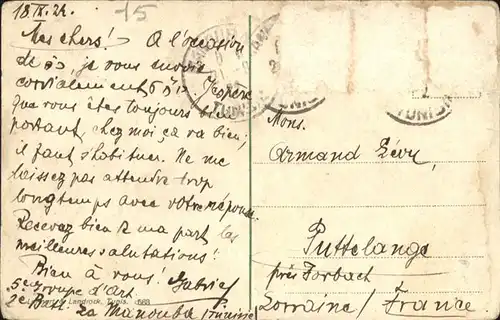 18.IX.24.
15
Mes chers! A l'occasion
de je vous envoie
cordialement J'espère
que vous êtes toujours bien
portant, chez moi ça va bien;
il faut s'habituer. Ne me
laissez pas attendre trop
longtemps avec votre réponse.
Recevez bien de ma part les
meilleures salutations!
Bien à vous! Gabriel
5e groupe d'Art.
2e Batt.
La Manouba (Tunisie)
Landrock, Tunis.
TUNISI
Mons.
Armand Lévy,
Puttelange
près Forbach
Lorraine/France